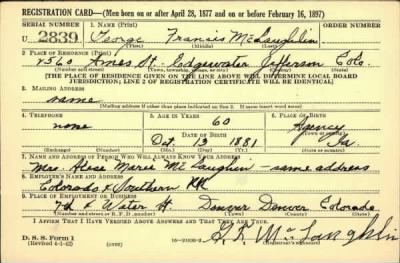 REGISTRATION CARD—(Men born on or after April 28, 1877 and on or before February 16, 1897)
SERIAL NUMBER 1. NAME (Print) ORDER NUMBER
U 2839 George Francis McLaughlin
(First) (Middle) (Last)
2. PLACE OF RESIDENCE (Print)
2560 Ames St. Edgewater Jefferson Colo.
(Number and street) (Town, township, village, or city) (County) (State)
[THE PLACE OF RESIDENCE GIVEN ON THE LINE ABOVE WILL DETERMINE LOCAL BOARD
JURISDICTION; LINE 2 OF REGISTRATION CERTIFICATE WILL BE IDENTICAL]
3. MAILING ADDRESS
same
[Mailing address if other than place indicated on line 2. If same insert word same]
4. TELEPHONE 5. AGE IN YEARS 6. PLACE OF BIRTH
none 60 Agency
DATE OF BIRTH (Town or county)
Oct 13 1881 Ia.
(Exchange) (Number) (Mo.) (Day) (Yr.) (State or country)
7. NAME AND ADDRESS OF PERSON WHO WILL ALWAYS KNOW YOUR ADDRESS
Mrs. Marie McLaughlin - same address
8. EMPLOYER'S NAME AND ADDRESS
Colorado & Southern RR
9. PLACE OF EMPLOYMENT OR BUSINESS
7th & Water St. Denver Denver Colorado
(Number and street or R. F. D. number) (Town) (County) (State)
I AFFIRM THAT I HAVE VERIFIED ABOVE ANSWERS AND THAT THEY ARE TRUE.
D. S. S. Form 1
(Revised 4-1-42) (over) G. F. McLaughlin
(Registrant's signature)